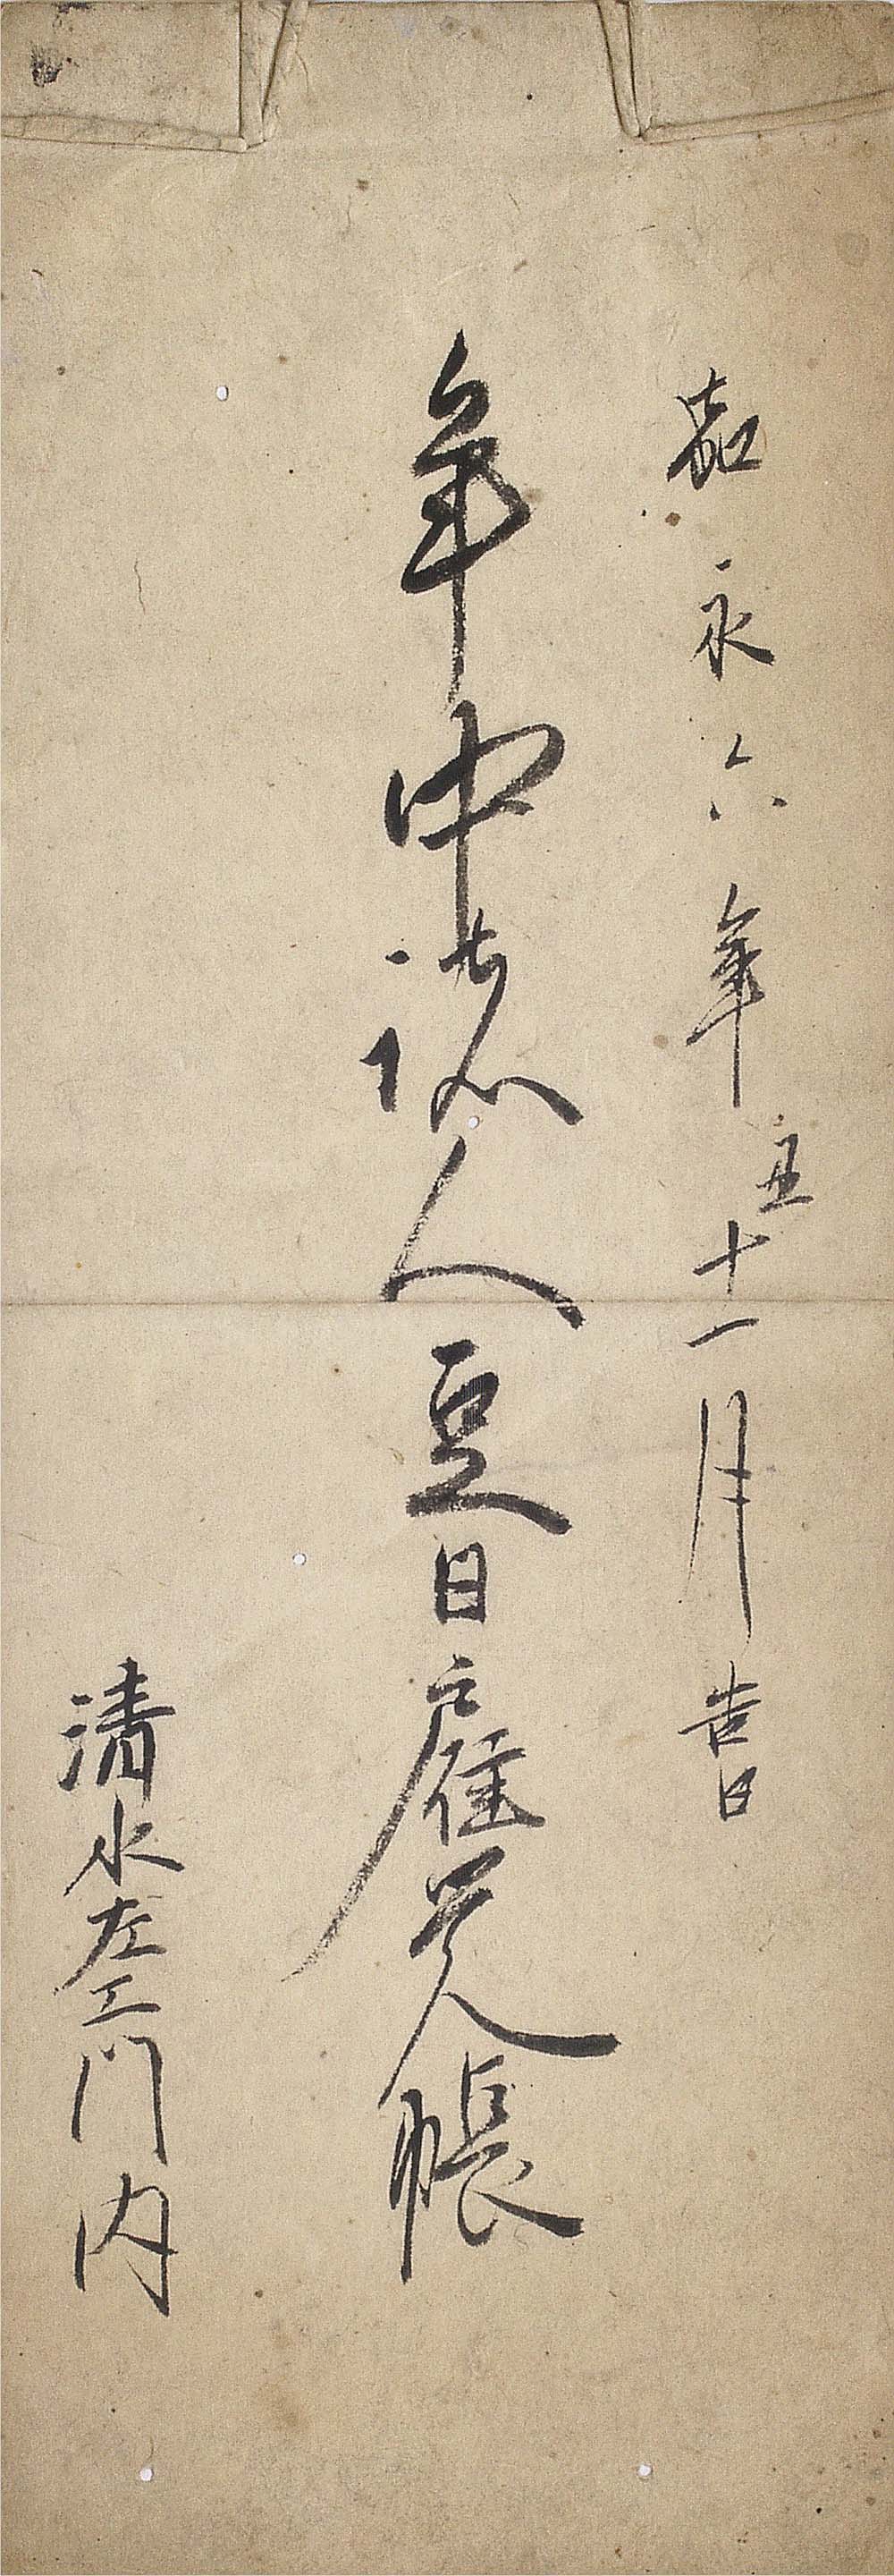 嘉永六年丑十一月吉日
年中諸人足日雇覚帳
清水左エ門内